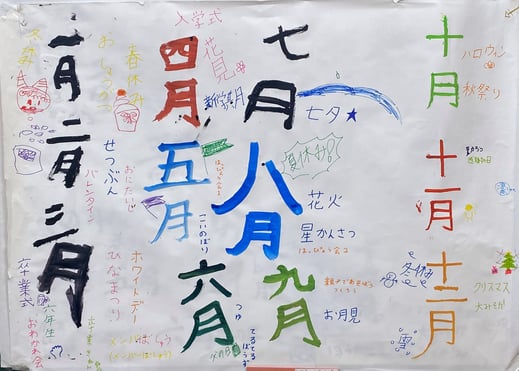 一月
冬休み
おしょうがつ
春休み
二月
せつぶん
おにたいじ
バレンタイン
三月
ホワイトデー
ひなまつり
卒業式
六年生
おわかれ会
入学式
四月
花見
新学期
五月
こいのぼり
六月
つゆ
父の日
てるてる
ぼうず
七月
七夕
夏休み
八月
花火
星かんさつ
九月
お月見
十月
ハロウィン
秋祭り
十一月
十二月
冬休み
クリスマス
大みそか
雪